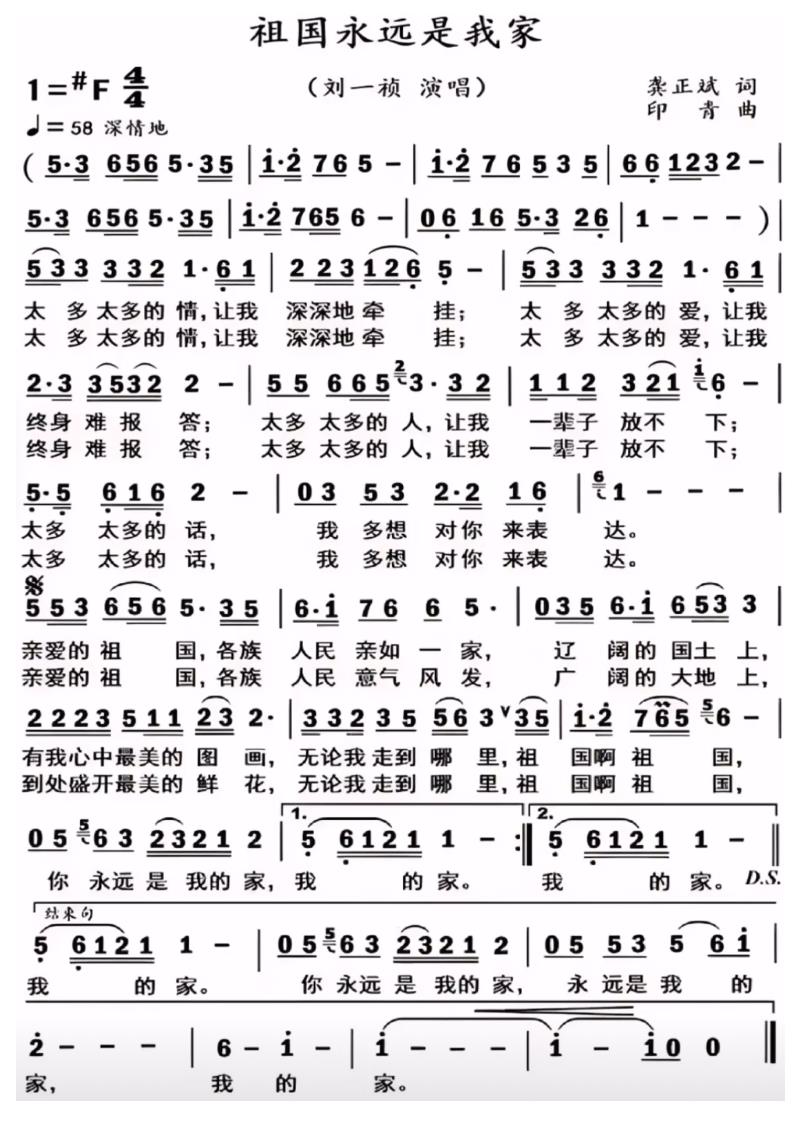 祖国永远是我家
1=#F 4/4
（刘一祯 演唱）
龚正斌 词
印青 曲
♩=58 深情地
( 5·3 656 5·35 | i·2 765 5 - | i·2 765 535 | 66 1232 2 - |
5·3 656 5·35 | i·2 765 6 - | 06 16 5·3 26 | 1 - - - ) |
533 332 1·61 | 223 126 5 - | 533 332 1·61 |
太 多 太多的 情,让我 深深地牵 挂; 太 多 太多的 爱,让我
太 多 太多的 情,让我 深深地牵 挂; 太 多 太多的 爱,让我
2·3 3532 2 - | 55 665 2 3·32 | 112 321 i 6 - |
终身 难报 答; 太多 太多的 人,让我 一辈子 放不 下;
终身 难报 答; 太多 太多的 人,让我 一辈子 放不 下;
5·5 616 2 - | 03 53 2·2 16 | 6 1 - - - |
太多 太多的 话, 我 多想 对你 来表 达。
太多 太多的 话, 我 多想 对你 来表 达。
553 656 5·35 | 6·i 76 6 5· | 035 6·i 653 3 |
亲爱的 祖 国,各族 人民 亲如 一 家, 辽 阔的 国土 上,
亲爱的 祖 国,各族 人民 意气 风 发, 广 阔的 大地 上,
2223 511 23 2· | 332 35 56 3 ∨ 35 | i·2 765 5 6 - |
有我心中最美的 图 画, 无论我 走到 哪 里,祖 国啊 祖 国,
到处盛开最美的 鲜 花, 无论我 走到 哪 里,祖 国啊 祖 国,
1. 2.
05 5 63 2321 2 | 5 6121 1 - :‖ 5 6121 1 - ‖
你 永远 是 我的 家,我 的 家。 我 的 家。 D.S.
结束句
5 6121 1 - | 05 5 63 2321 2 | 05 53 5 6i |
我 的 家。 你 永远 是 我的 家, 永 远是 我 的
2 - - - | 6 - i - | i - - - | i - i0 0 ‖
家, 我 的 家。